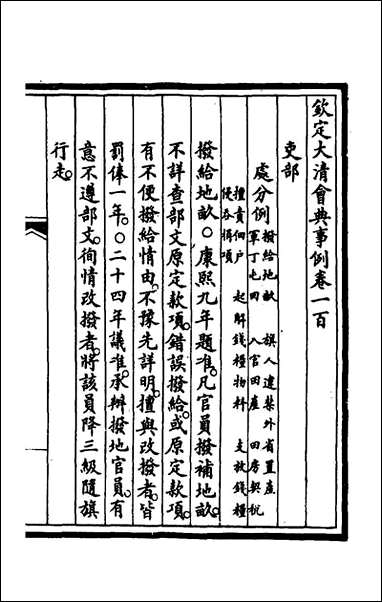 欽定大清會典事例卷一百
吏部
處分例 撥給地畝 旗人違禁外省置產
軍丁屯田 入官田產 田房契稅
擅責佃戶 起解錢糧物料 支放錢糧
侵各捐項
撥給地畝○康熙九年題准凡官員撥補地畝
不詳查部文原定款項錯誤撥給或原定款項
有不便撥給情由不豫先詳明擅與改撥者皆
罰俸一年○二十四年議准承辦撥地官員有
意不遵部文徇情改撥者將該員降三級隨旗
行走